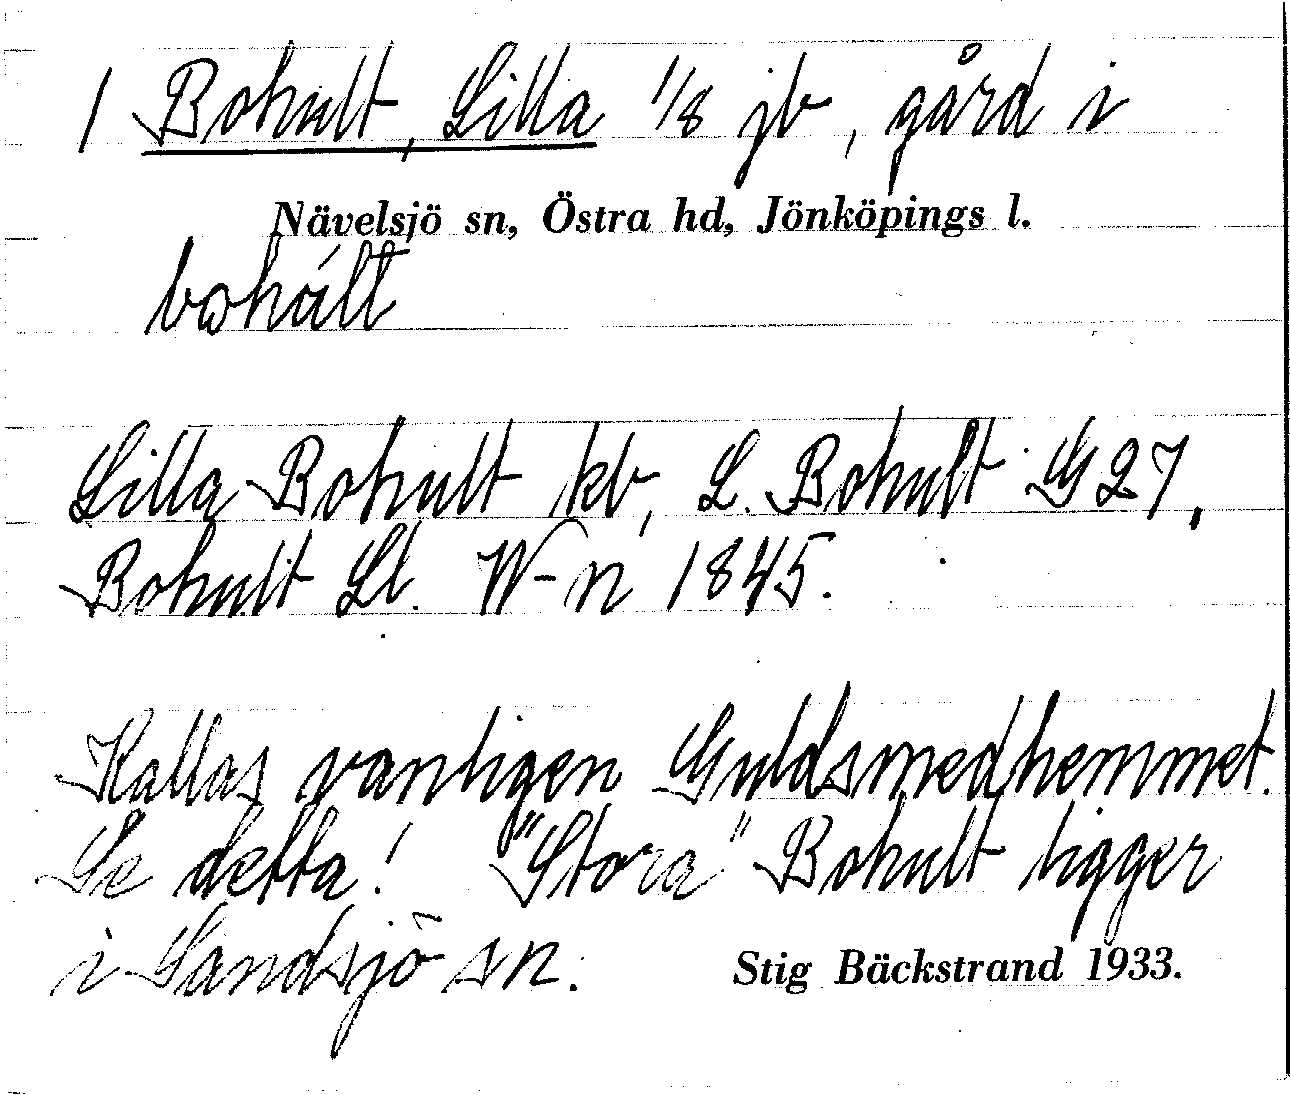 1 Bohult, Lilla 1/8 jb, gård i
Nävelsjö sn, Östra hd, Jönköpings l.
bohált
Lilla Bohult kb, L. Bohult G 27,
Bohult Ll. W-n 1845.
Kallas vanligen Guldsmedhemmet.
Se detta! "Stora" Bohult ligger
i Sandsjö sn. Stig Bäckstrand 1933.